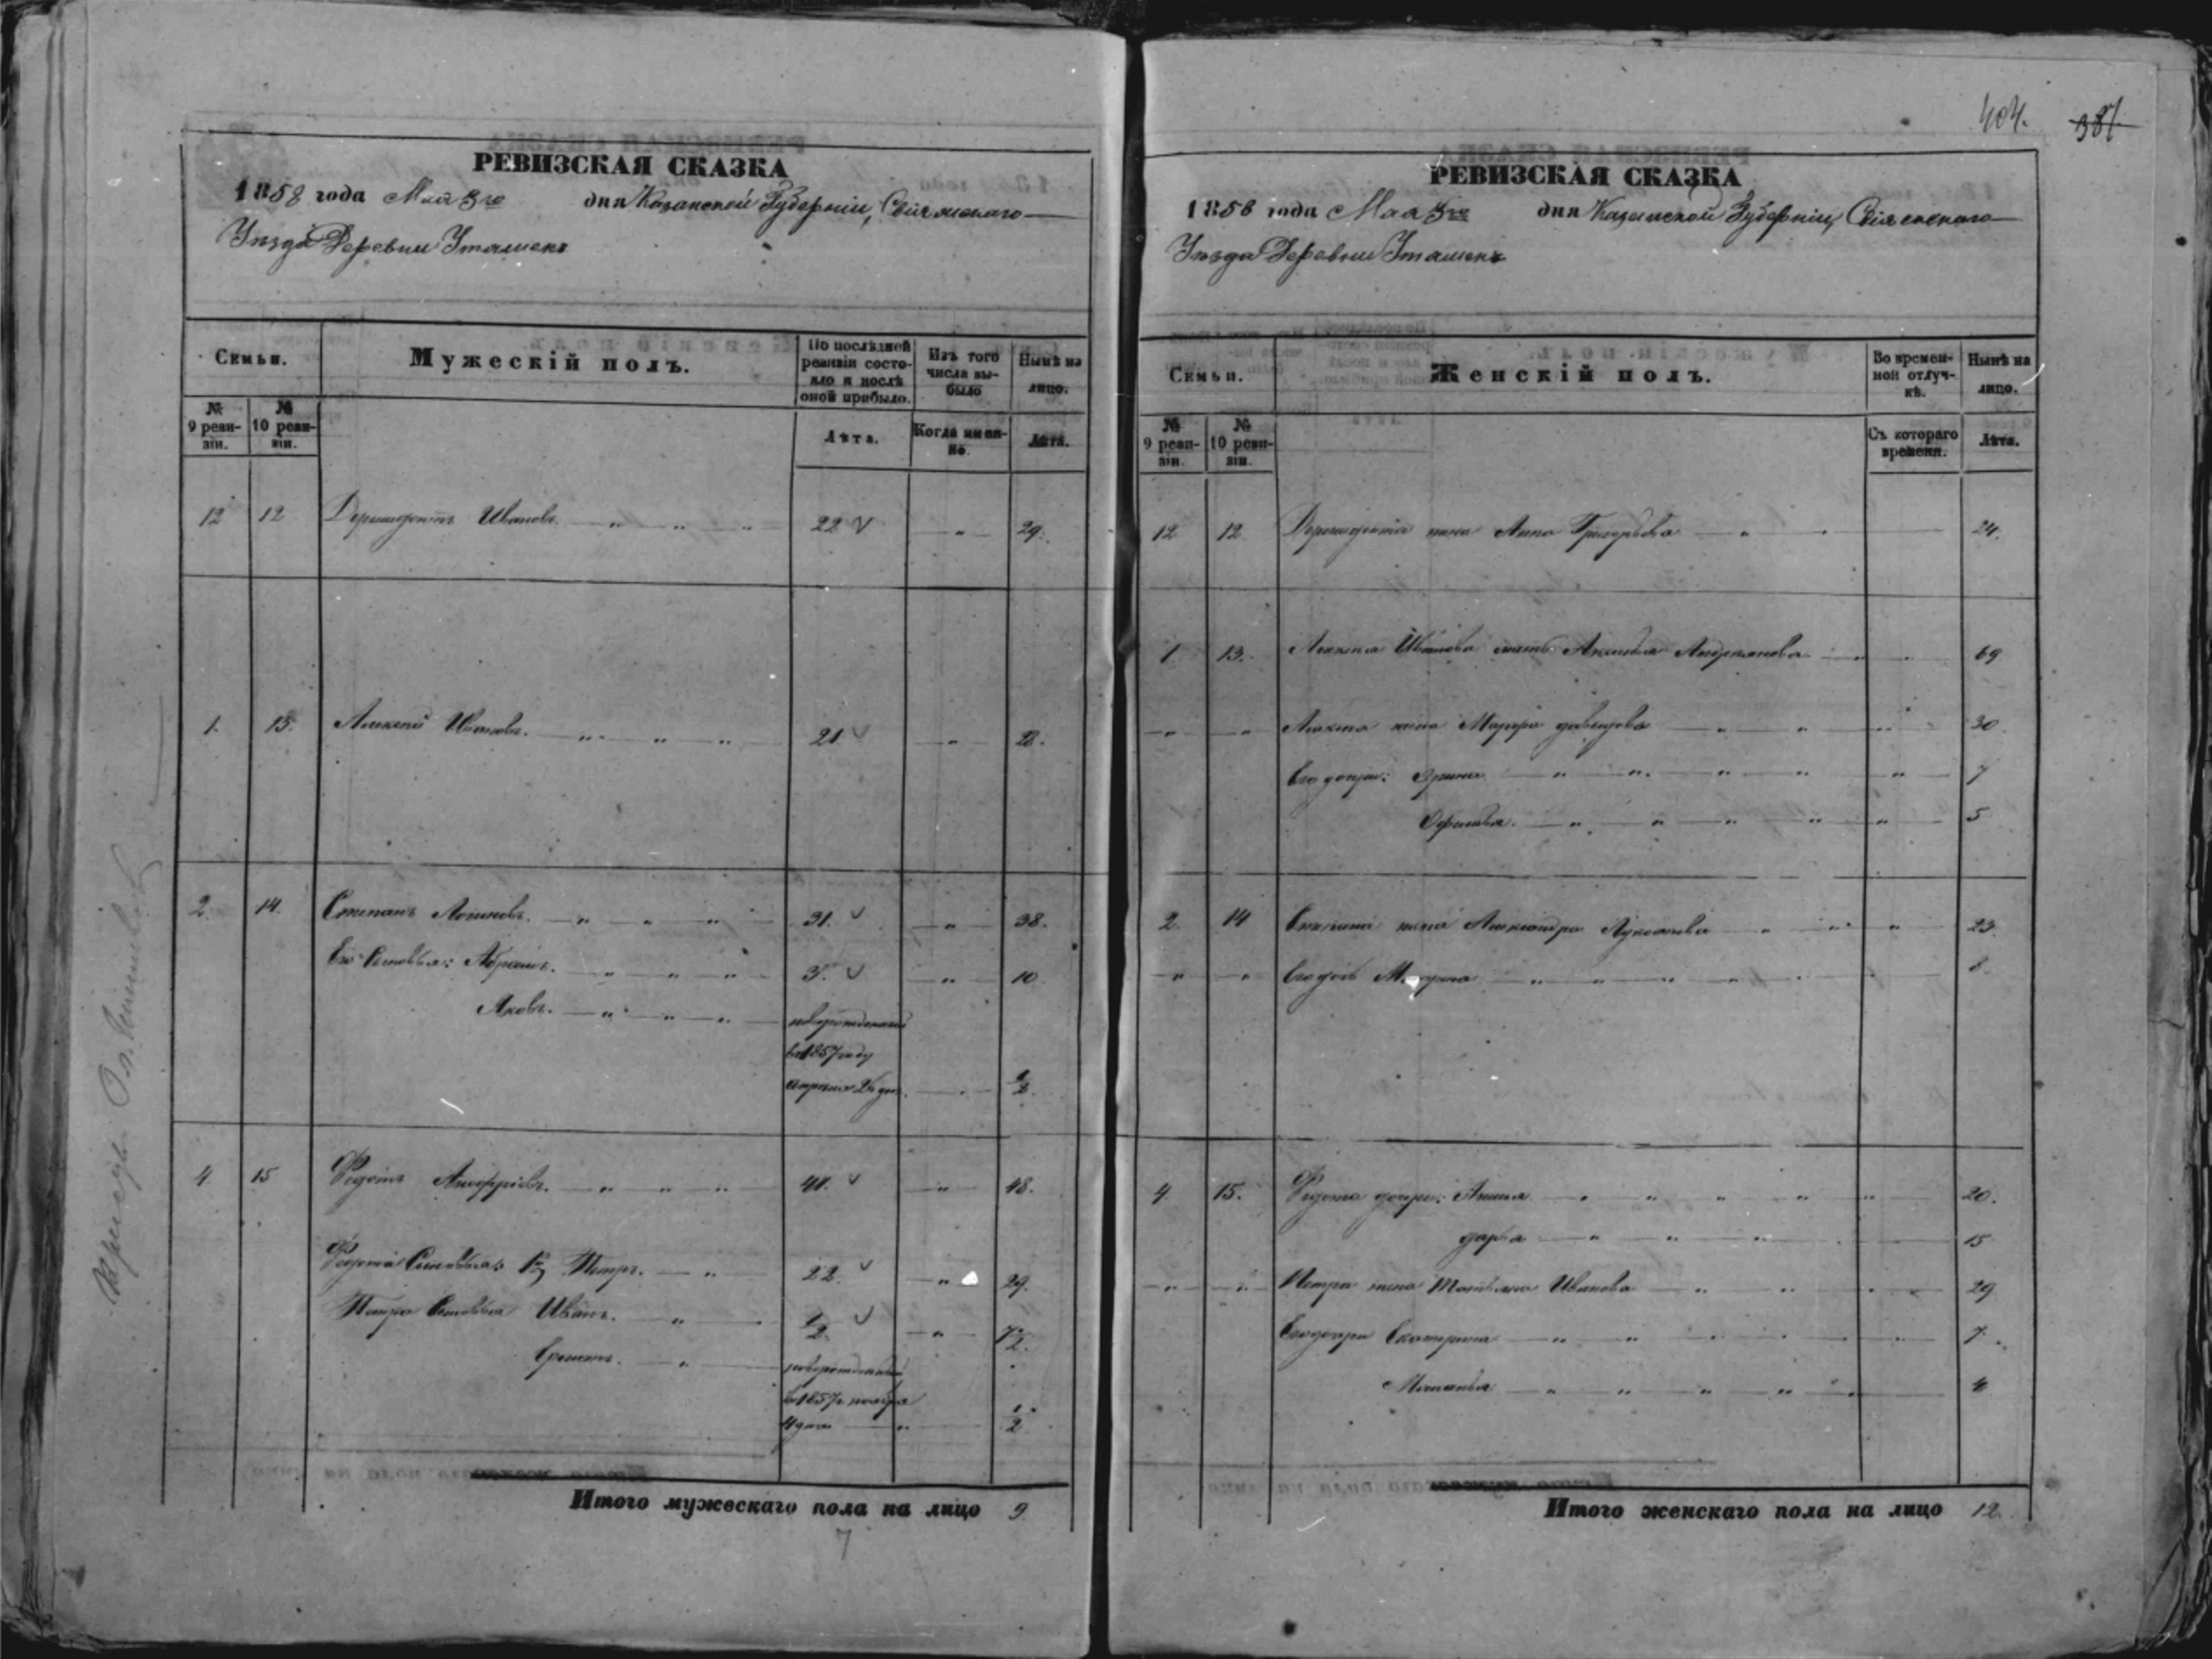 404. 387
РЕВИЗСКАЯ СКАЗКА
1858 года Мая 3го дня Казанской Губерніи, Свіяжскаго
Уезда Деревни Утяшекъ
Семьи. Мужескій полъ. По послѣдней ревизіи состояло и послѣ оной прибыло. Изъ того числа выбыло Нынѣ на лицо.
№ 9 ревизіи. № 10 ревизіи. Лѣта. Когда именно. Лѣта.
12 12 Ивановъ. 22 29.
1. 13. Алексѣй Ивановъ. 21. 28.
2. 14. Степанъ Логиновъ. 31. 38.
Его Сыновья: Абрамъ. 3. 10.
Яковъ. новорожденный
въ 1857 году
апреля 26 дня. 1/2.
4. 15 Федотъ 41. 48.
Федота Сыновья: 1й Петръ. 22. 29.
Петра Сыновья Иванъ. 1/2 7 1/2.
новорожденный
въ 1857 ноября
дня 1/2
Итого мужескаго пола на лицо 9
7
РЕВИЗСКАЯ СКАЗКА
1858 года Мая 3го дня Казанской Губерніи, Свіяжскаго
Уезда Деревни Утяшекъ
Семьи. Женскій полъ. Во временной отлучкѣ. Нынѣ на лицо.
№ 9 ревизіи. № 10 ревизіи. Съ котораго времени. Лѣта.
12 12 жена Анна Григорьева 24.
1 13. Алексѣя Иванова мать Акулина Андреянова 69
Алексѣя жена Марфа Давыдова 30.
Его дочери: Ирина 7
Офимья. 5
2. 14 Степана жена Александра 23.
Его дочь 8
4 15. Федота дочери: 20.
Дарья 15
Петра жена Татьяна Иванова 29
Его дочери Екатерина 7.
Маланья 4
Итого женскаго пола на лицо 12.